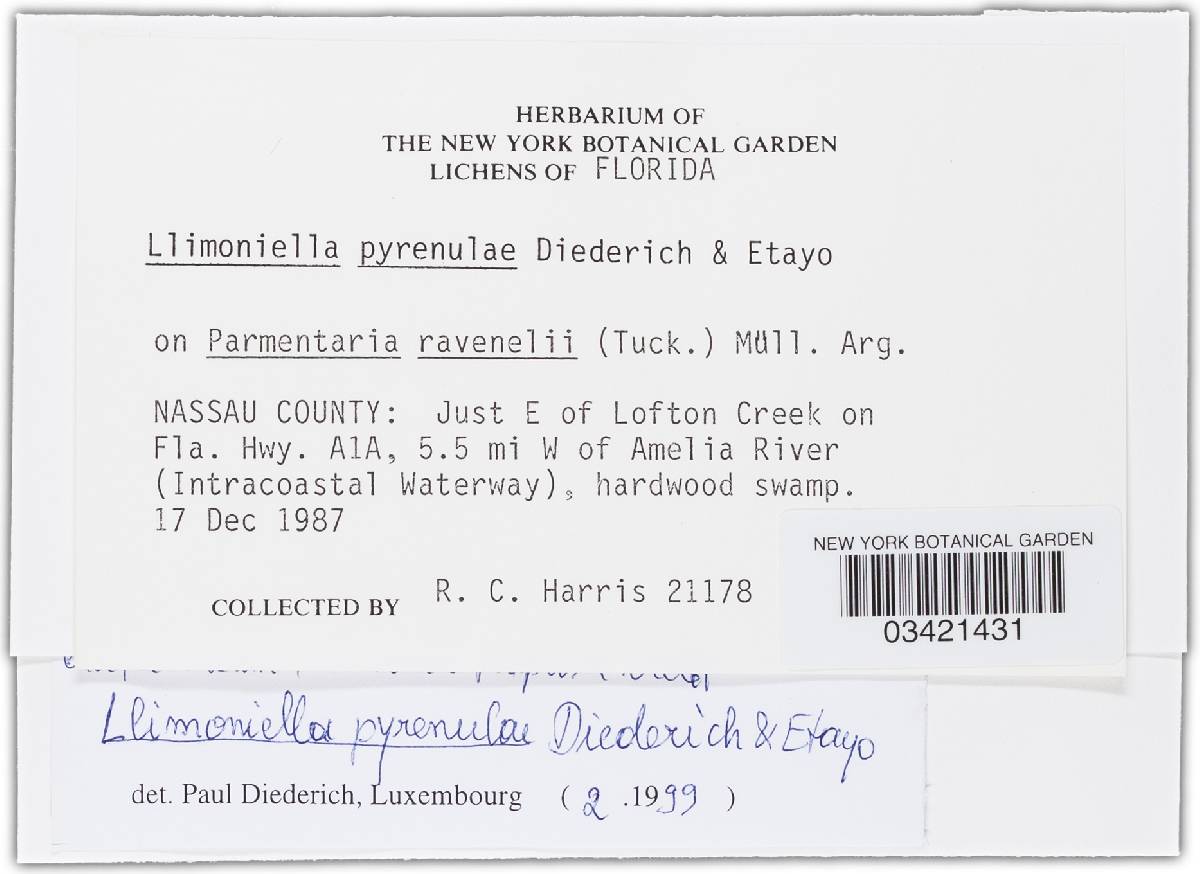 HERBARIUM OF
THE NEW YORK BOTANICAL GARDEN
LICHENS OF FLORIDA
Llimoniella pyrenulae Diederich & Etayo
on Parmentaria ravenelii (Tuck.) Müll. Arg.
NASSAU COUNTY: Just E of Lofton Creek on
Fla. Hwy. A1A, 5.5 mi W of Amelia River
(Intracoastal Waterway), hardwood swamp.
17 Dec 1987
COLLECTED BY R. C. Harris 21178
NEW YORK BOTANICAL GARDEN
03421431
Llimoniella pyrenulae Diederich & Etayo
det. Paul Diederich, Luxembourg ( 2 .1999 )